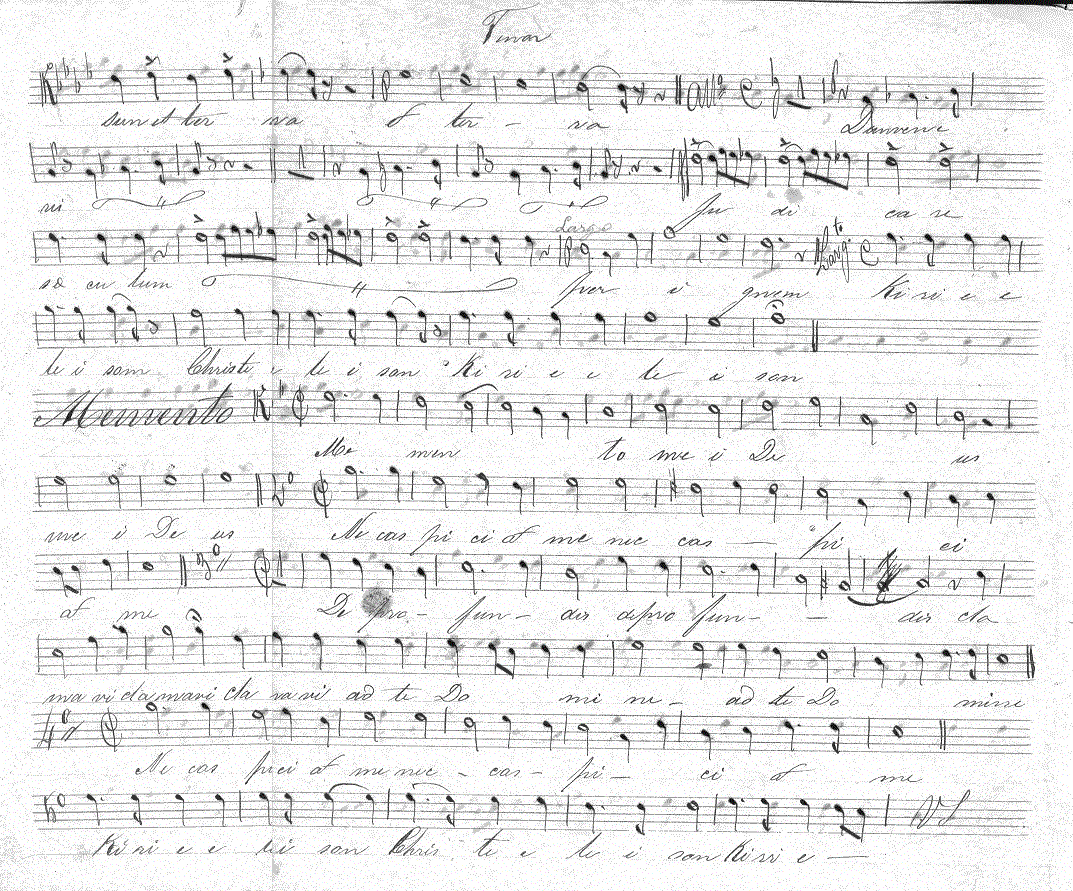 Tenor
sunt et ter ra et ter - ra Dumvene
ri Ju di ca re
Largo
sæ cu lum per i gnem Larg.to Ki ri e e
le i son Christe e le i son Ki ri e e le i son
Memento
Me men to me i De us
me i De us Ne cas pi ci at me nec cas — pi ci
at me De pro - fun - dis de pro fun - - dis cla
ma vi clamavi cla mavi ad te Do mi ne - ad te Do mine
4º
Ne cas pici at me nec - cas - pi - ci at me
Ki ri e e lei son Chris te e le i son Ki ri e — V S